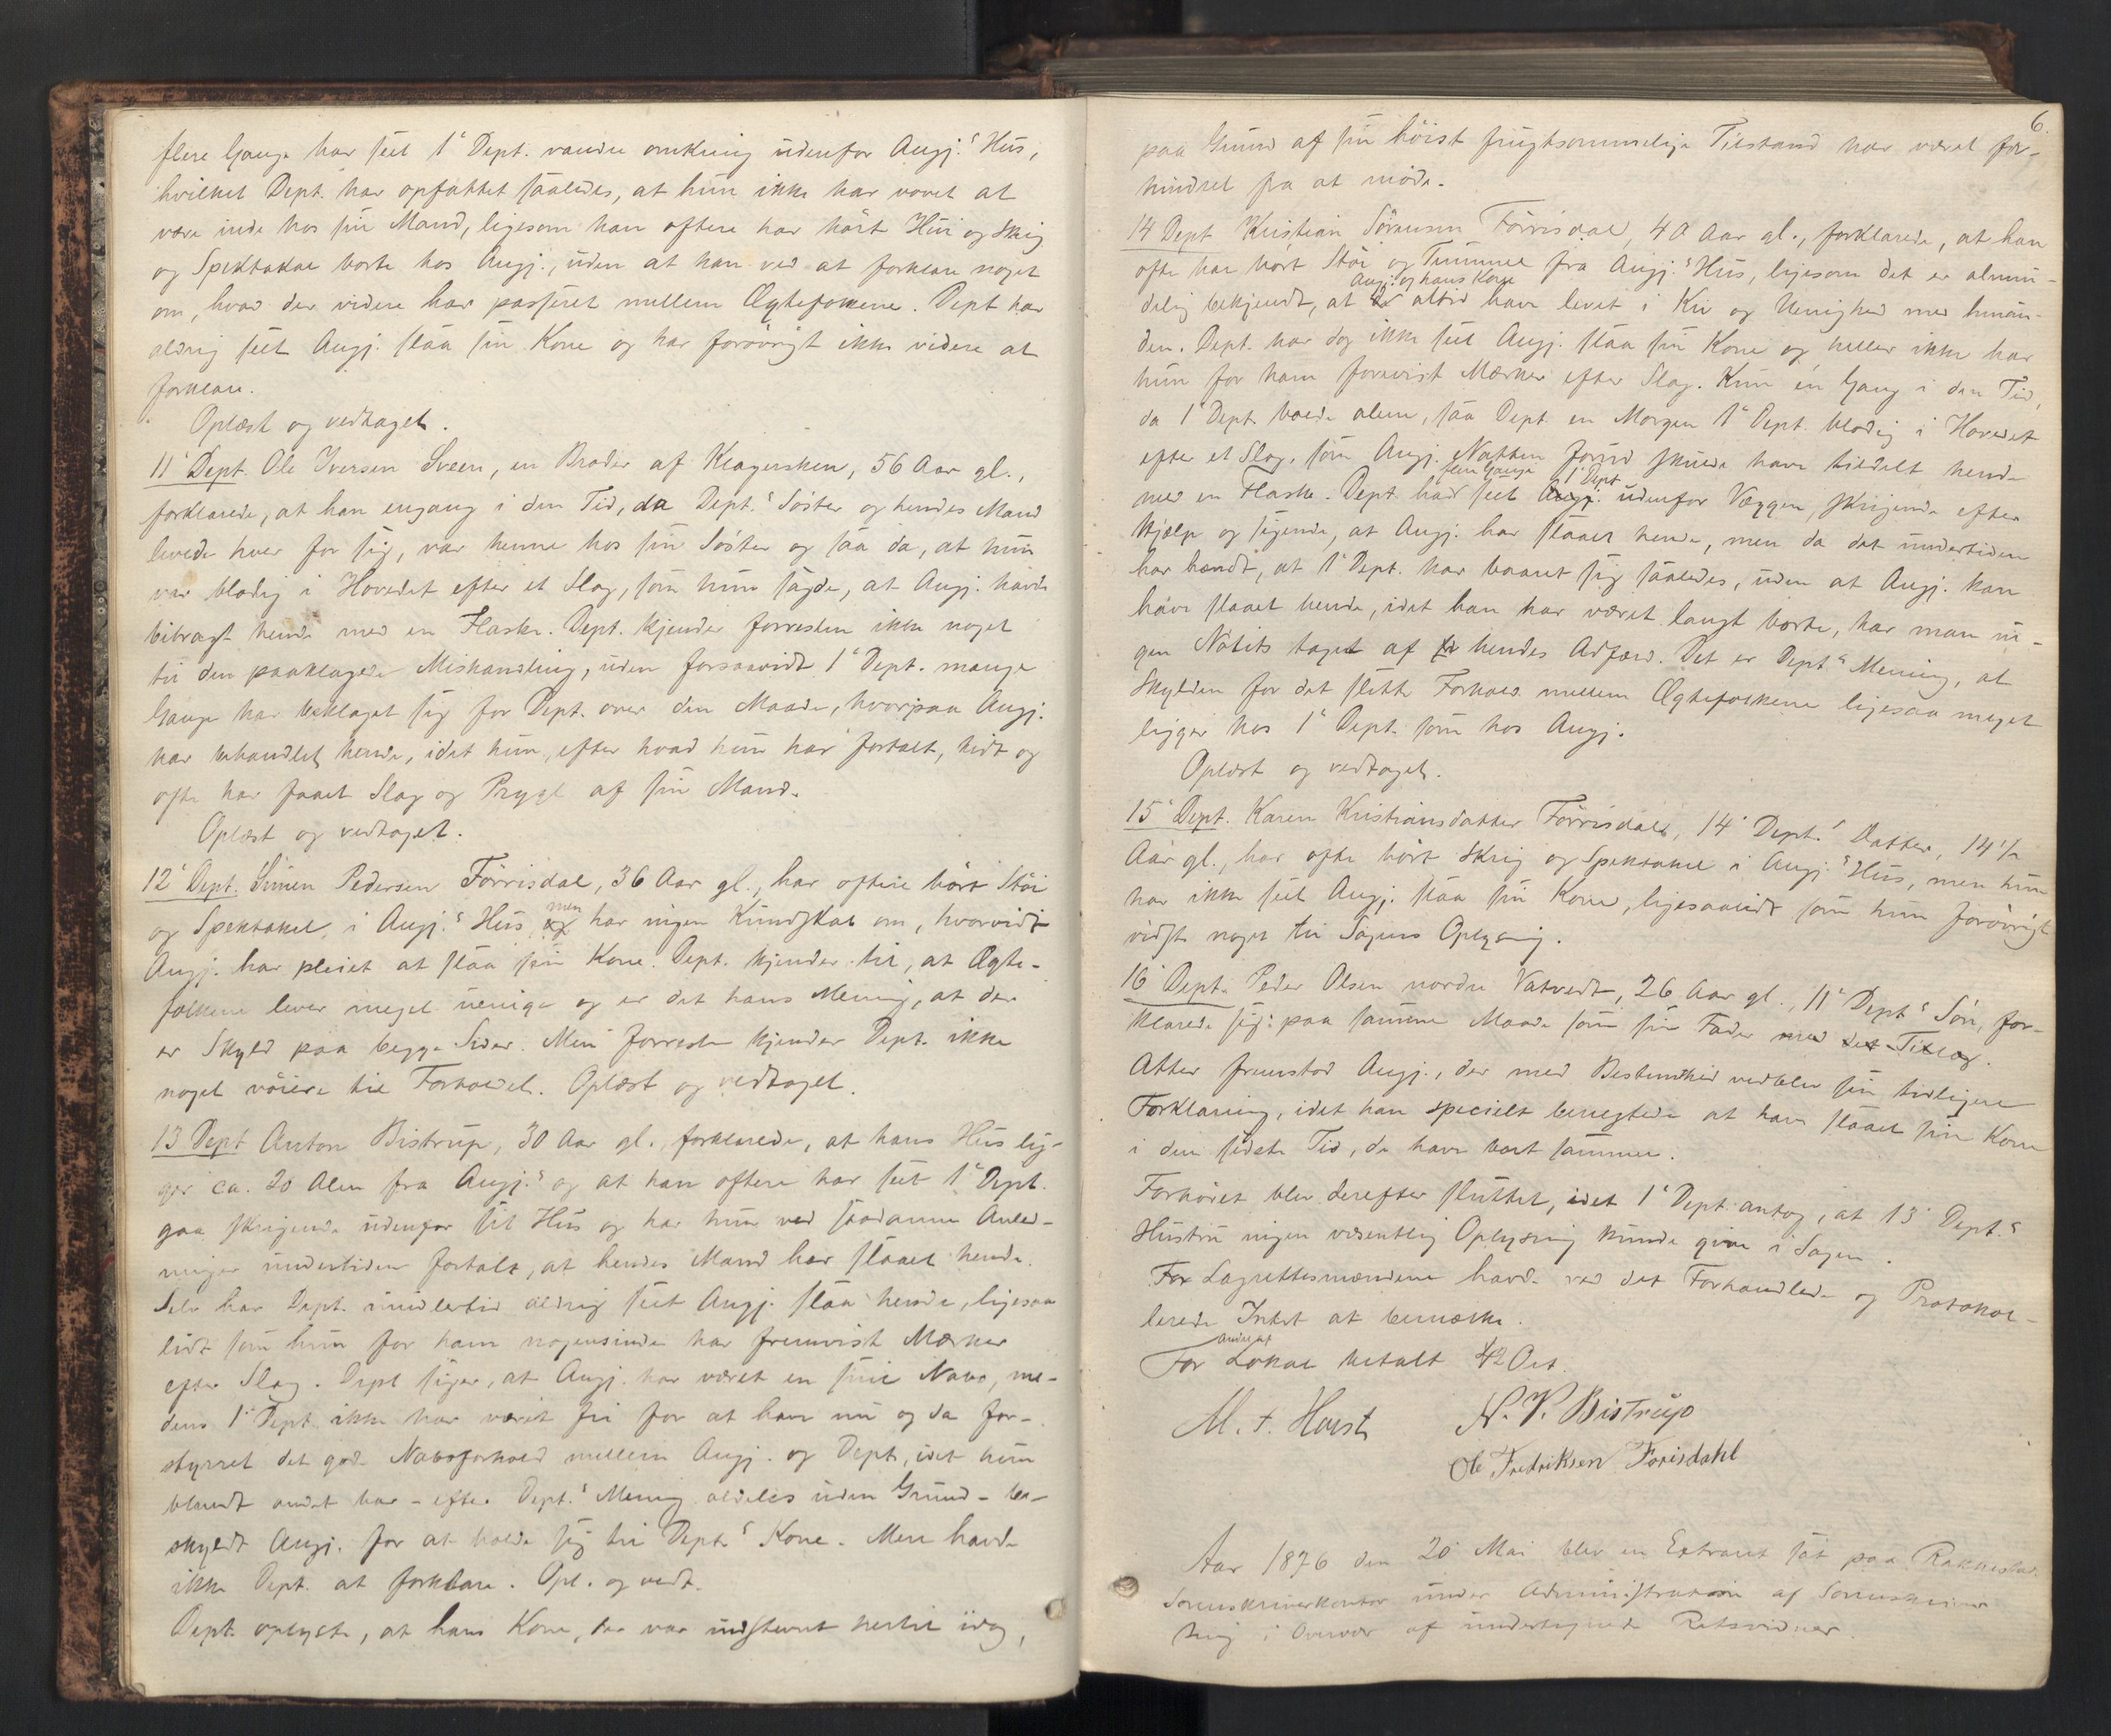 flere Gange har seet 1ᵉ Dept. vandre omkring udenfor Angj.ˢ Hus,
hvilket Dept. har opfattet saaledes, at hun ikke har vovet at
være inde hos sin Mand, ligesom han oftere har hört Hui og Skrig
og Spektakel borte hos Angj., uden at han ved at forklare noget
om, hvad der videre har passeret mellem Ægtefolkene. Dept har
aldrig seet Angj. slaa sin Kone og har forövrigt ikke videre at
forklare.
Oplæst og vedtaget.
11ᵉ Dept. Ole Iversen Sveen, en Broder af Klagersken, 56 Aar gl.,
forklarede, at han engang i den Tid, da Dept.ˢ Söster og hendes Mand
levede hver for sig, var henne hos sin Söster og saa da, at hun
var blodig i Hovedet efter et Slag, som hun sagde, at Angj. havde
bibragt hende med en Flaske. Dept. kjender forresten ikke noget
til den paaklagede Mishandling, uden forsaavidt 1ᵉ Dept. mange
Gange har beklaget sig for Dept. over den Maade, hvorpaa Angj.
har behandlet hende, idet hun, efter hvad hun har fortalt, tidt og
ofte har faaet Slag og Prygl af sin Mand.
Oplæst og vedtaget.
12ᵉ Dept. Simen Pedersen Förrisdal, 36 Aar gl., har oftere hört Stöi
og Spektakel i Angj.ˢ Hus, og men har ingen Kundskab om, hvorvidt
Angj. har pleiet at slaa sin Kone. Dept. kjender til, at Ægte-
folkene lever meget uenige og er det hans Mening, at der
er Skyld paa begge Sider. Men forresten kjender Dept. ikke
noget nöiere til Forholdet. Oplæst og vedtaget.
13 Dept Anton Bistrup, 30 Aar gl., forklarede, at hans Hus lig-
ger ca. 20 Alen fra Angj.ˢ og at han oftere har seet 1ᵉ Dept.
gaa skrigende udenfor sit Hus og har hun ved saadanne Anled-
ninger undertiden fortalt, at hendes Mand har slaaet hende.
Selv har Dept. imidlertid aldrig seet Angj. slaa hende, ligesaa
lidt som hun for ham nogensinde har fremvist Mærker
efter Slag. Dept siger, at Angj. har været en snil Nabo, me-
dens 1ᵉ Dept. ikke har været fri for at have nu og da for-
styrret det gode Naboforhold mellem Angj. og Dept, idet hun
blandt andet har – efter Dept.ˢ Mening aldeles uden Grund – be-
skyldt Angj. for at holde sig til Dept.ˢ Kone. Mere havde
ikke Dept. at forklare. Opl. og vedt.
Dept. oplyste, at hans Kone, der var indstevnt hertil idag,
6.
paa Grund af sin höist frugtsommelige Tilstand har været for-
hindret fra at möde.
14 Dept Kristian Sörensen Förrisdal, 40 Aar gl., forklarede, at han
ofte har hört Stöi og Tummel fra Angj.ˢ Hus, ligesom det er almin-
delig bekjendt, at de Angj. og hans Kone altid have levet i Kiv og Uenighed med hinan-
den. Dept. har dog ikke seet Angj. slaa sin Kone og heller ikke har
hun for ham forevist Mærker efter Slag. Kun én Gang i den Tid,
da 1ᵉ Dept. boede alene, saa Dept. en Morgen 1ᵉ Dept. blodig i Hovedet
efter et Slag, som Angj. Natten forud skulde have tildelt hende
med en Flaske. Dept. har flere Gange seet Angj. 1ᵉ Dept udenfor Væggen, skrigende efter
Hjælp og sigende, at Angj. har slaaet hende, men da det undertiden
har hændt, at 1ᵉ Dept. har baaret sig saaledes, uden at Angj. kan
have slaaet hende, idet han har været langt borte, har man in-
gen Notits taget af hendes Adfærd. Det er Dept.ˢ Mening, at
Skylden for det slette Forhold mellem Ægtefolkene ligesaa meget
ligger hos 1ᵉ Dept. som hos Angj.
Oplæst og vedtaget.
15ᵉ Dept. Karen Kristiansdatter Förrisdal, 14ᵉ Dept.ˢ Datter, 14½
Aar gl., har ofte hört Skrig og Spektakel i Angj.ˢ Hus, men hun
har ikke seet Angj. slaa sin Kone, ligesaalidt som hun forövrigt
vidste noget til Sagens Oplysning.
16ᵉ Dept. Peder Olsen nordre Vatvedt, 26 Aar gl., 11ᵉ Dept.ˢ Sön, for-
klarede sig paa samme Maade som sin Fader med det Tillæg.
Atter fremstod Angj., der med Bestemthed vedblev sin tidligere
Forklaring, idet han specielt benegtede at have slaaet sin Kone
i den sidste Tid, de have boet sammen.
Forhöret blev derefter sluttet, idet 1ᵉ Dept. antog, at 13ᵉ Dept.ˢ
Hustru ingen væsentlig Oplysning kunde give i Sagen.
For Lagrettesmændene havde ved det Forhandlede og Protokol-
lerede Intet at bemærke.
For Lokal betalt 42 Öre.
N. P. Bistrup
Ole Fredriksen Forisdahl
Aar 1876 den 20ᵉ Mai blev en Extraret sat paa Rakkestad
Sorenskriverkontor under Administration af Sorenskriver
i Overvær af undertegnede Retsvidner.